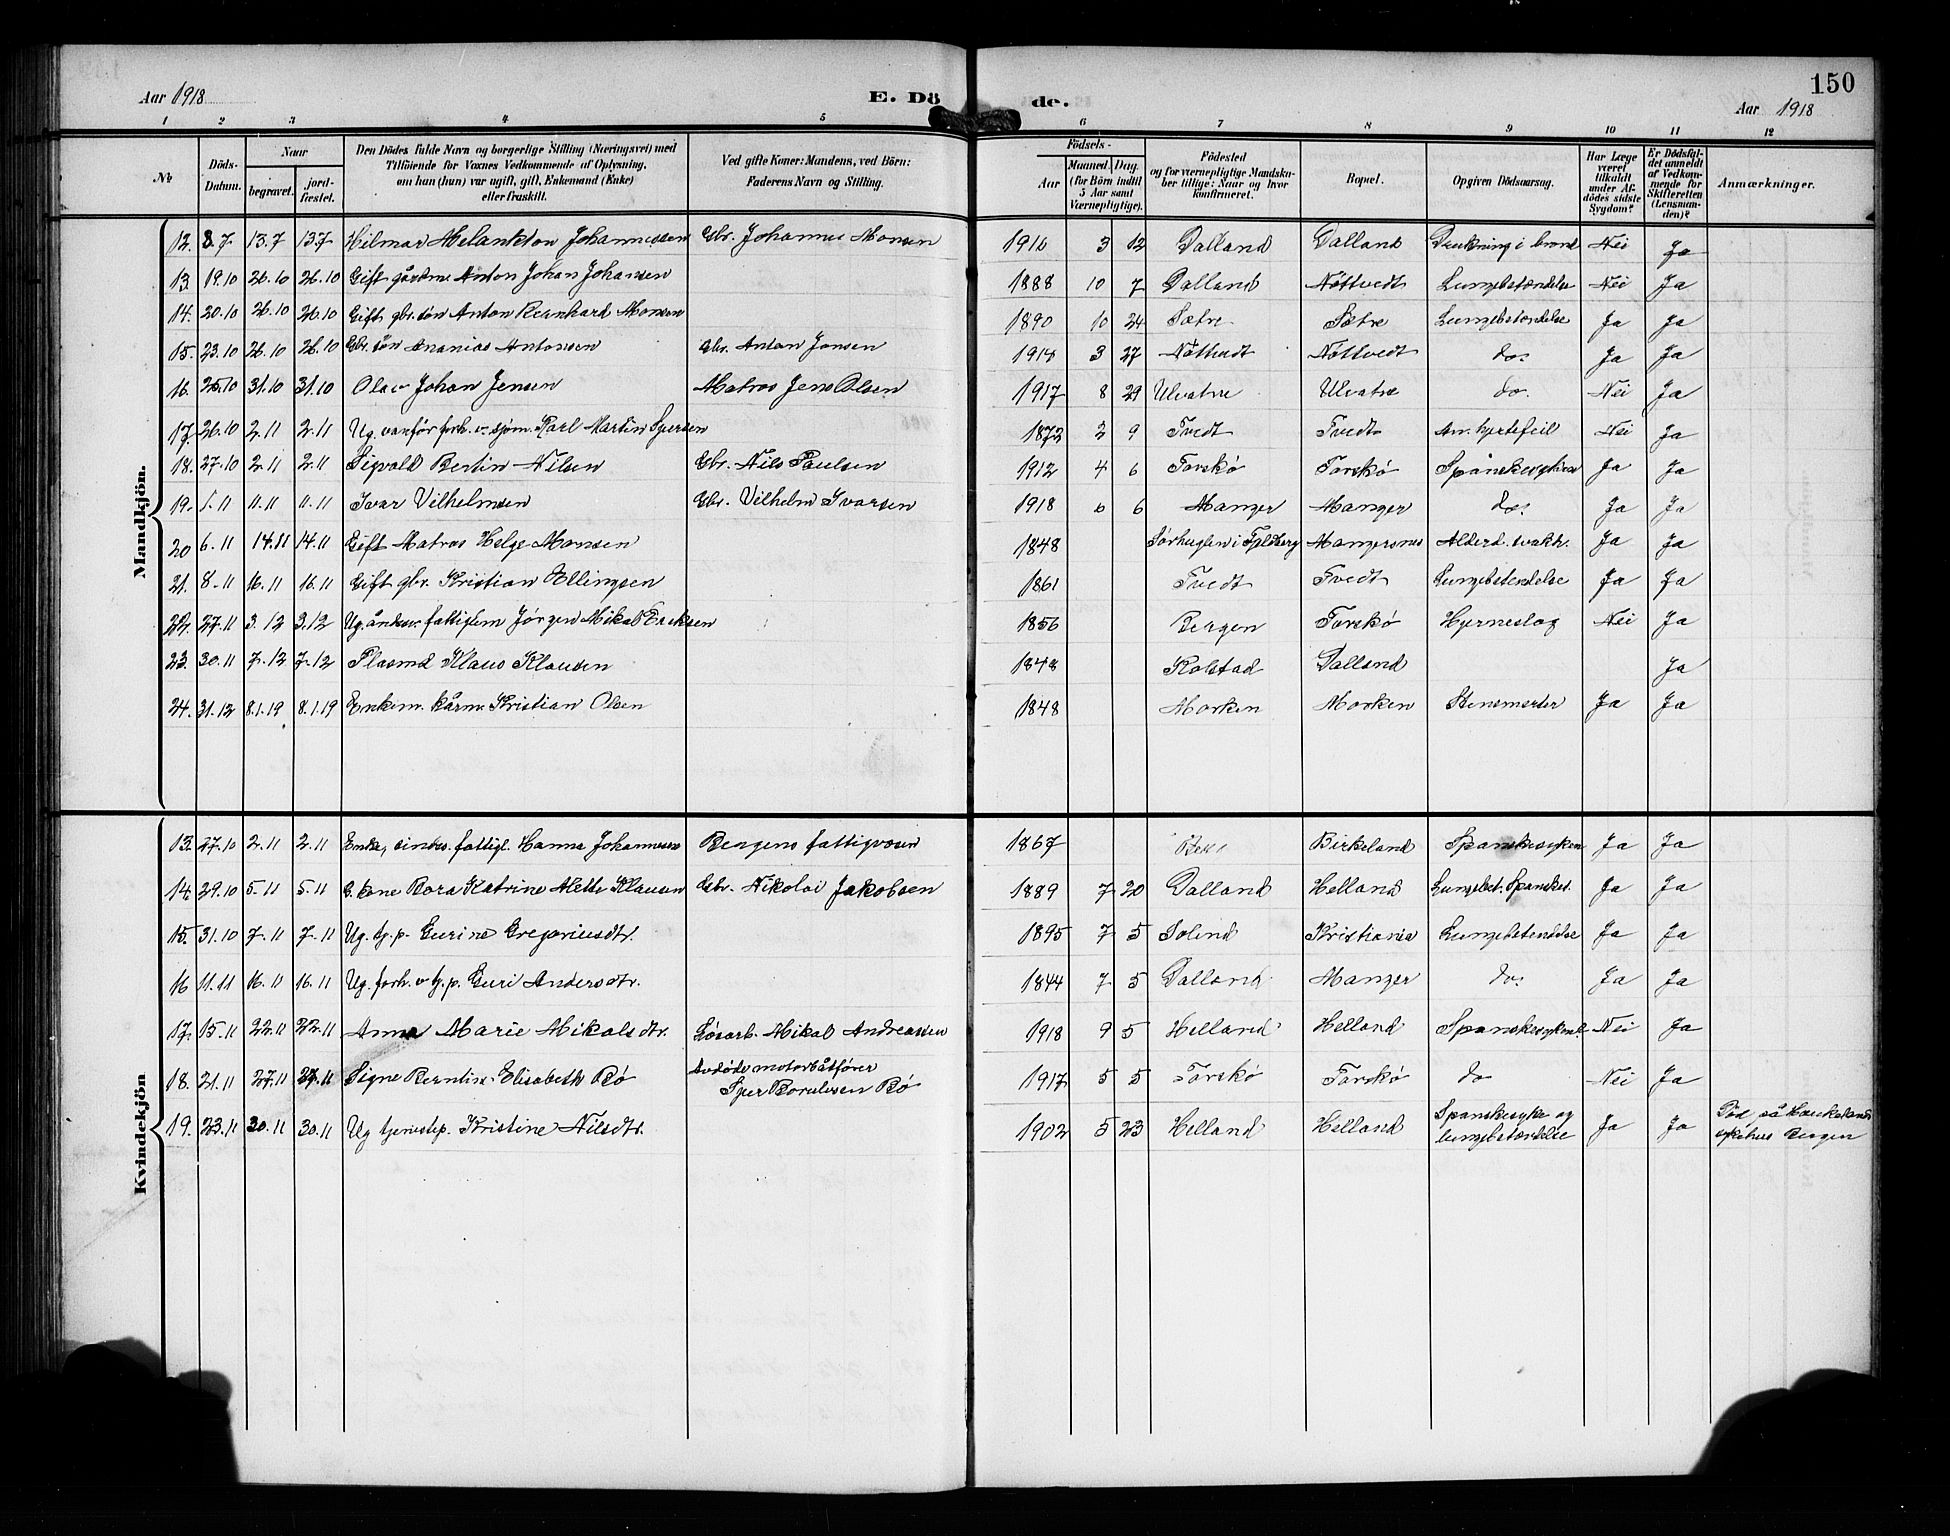 150
Aar 1918 E. Dö de. Aar 1918
1 2 3 4 5 6 7 8 9 10 11 12
№
Döds-Datum.
Naar
begravet. jord-fæstet.
Den Dödes fulde Navn og borgerlige Stilling (Næringsvei) med
Tilföiende for Voxnes Vedkommende af Oplysning,
om han (hun) var ugift, gift, Enkemand (Enke)
eller fraskilt.
Ved gifte Koner: Mandens, ved Börn:
Faderens Navn og Stilling.
Födsels-
Aar Maaned. Dag.
(for Börn indtil
5 Aar samt
Værnepligtige).
Födested
og for værnepligtige Mandsku-
ber tillige: Naar og hvor
konfirmeret.
Bopæl.
Opgiven Dödsaarsag.
Har Læge
været
tilkaldt
under Af-
dödes sidste
Sygdom?
Er Dödsfal-
det anmeldt
af Vedkom-
mende for
Skifteretten
(Lensman-
den)?
Anmærkninger.
Mandkjön.
12. 8.7 13.7 13.7 Hilmar Melankton Johannessen Gbr. Johannes Monsen 1916 3 12 Dalland Dalland Drukning i brond Nei Ja
13. 19.10 26.10 26.10 Gift gårdm. Anton Johan Johansen 1888 10 7 Dalland Nöttvedt Lungebetændelse Nei Ja
14. 20.10 26.10 26.10 Gift gbr. sön Anton Bernhard Monsen 1890 10 24 Sætre Sætre Lungebetændelse Ja Ja
15. 23.10 26.10 26.10 Gbr. sön Ananias Antonsen Gbr. Anton Jonsen 1914 3 27 Nöttvedt Nöttvedt do. Ja Ja
16. 25.10 31.10 31.10 Olav Johan Jensen Matros Jens Olsen 1917 8 29 Ulvatne Ulvatne do. Nei Ja
17. 26.10 2.11 2.11 Ug. vanför forh. v. sjöm. Karl Martin Ipersen 1872 2 9 Tvedt Tvedt An. hjertefeil Nei Ja
18. 27.10 2.11 2.11 Sigvald Bertin Nilsen Gbr. Nils Paulsen 1912 4 6 Torskö Torskö Spanskesyken Ja Ja
19. 1.11 11.11 11.11 Ivar Vilhelmsen Gbr. Vilhelm Ivarsen 1918 6 6 Manger Manger do. Ja Ja
20 6.11 14.11 14.11 Gift Matros Helge Monsen 1848 Sørhuglen i Fjeldberg Mangersnes Alderd. svakh. Ja Ja
21. 8.11 16.11 16.11 Gift gbr. Kristian Ellingsen 1861 Tvedt Tvedt Lungebetendelse Ja Ja
22. 27.11 3.12 3.12 Ug. åndssv. fattiglem Jørgen Mikal Eriksen 1856 Bergen Torskö Hjerneslag Nei Ja
23. 30.11 7.12 7.12 Plasmd Klaus Klausen 1848 Kolstad Dalland Ja
24. 31.12 8.1.19 8.1.19 Enkem. kårm. Kristian Olsen 1848 Morken Morken Stensmerter Ja Ja
Kvindekjön
13. 27.10 2.11 2.11 Enke, sindss. fattigl. Hanna Johannesen Bergens fattigvesen 1867 Birkeland Spanskesyken Ja Ja
14. 29.10 5.11 5.11 G. kone Bora Katrine Alette Klausen Gbr. Nikolai Jakobsen 1889 7 20 Dalland Helland Lungebet. Spanskes. Ja Ja
15. 31.10 7.11 7.11 Ug. tj.p. Gurine Gregoriusdtr. 1895 7 5 Solend Kristiania Lungebetendelse Ja Ja
16 11.11 16.11 16.11 Ug. forh. v. tj.p. Guri Andersdtr. 1844 7 5 Dalland Manger do. Ja Ja
17. 15.11 22.11 22.11 Anna Marie Mikalsdtr. Løsarb. Mikal Andreassen 1918 9 5 Helland Helland Spanskesyken Nei Ja
18. 21.11 27.11 27.11 Signe Berntine Elisabeth Bö Avdöde motorbåtförer
Iper Bornlusen Bö 1917 5 5 Torskö Torskö do Nei Ja
19. 23.11 30.11 30.11 Ug tjenestep. Kristine Nilsdtr. 1902 5 23 Helland Helland Spanskesyke og
lungebetændelse Ja Ja Död på Haukelands
sykehus Bergen